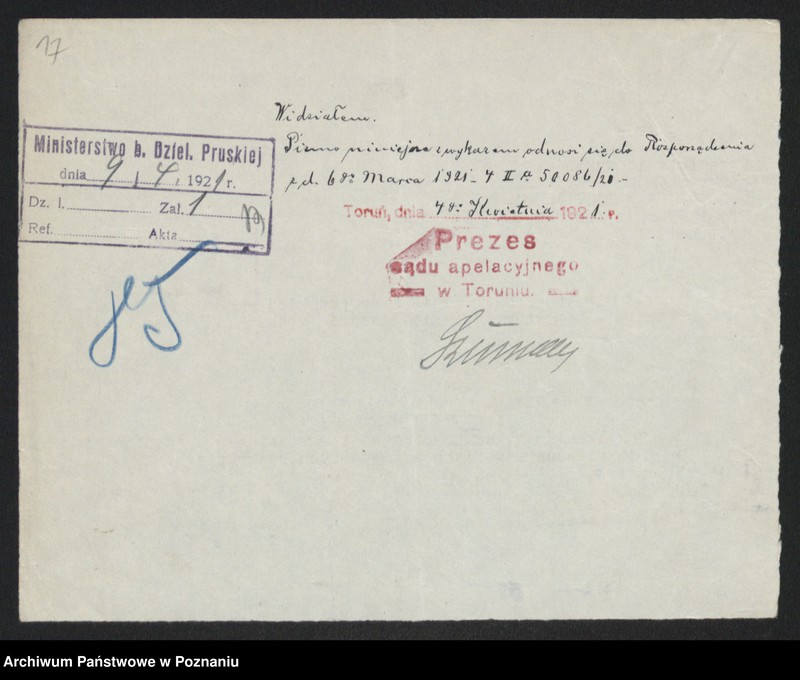 17
Widziałem.
Pismo niniejsze z wykazem odnosi się do Rozporządzenia
z d. 6 go Marca 1921 - 4 II a 50086/21 -
Ministerstwo b. Dziel. Pruskiej
dnia 9. 4. 1921 r.
Dz. l. Zał. 1
Ref. Akta
Toruń, dnia 4 go Kwietnia 1921. r.
Prezes
sądu apelacyjnego
w Toruniu.
Archiwum Państwowe w Poznaniu